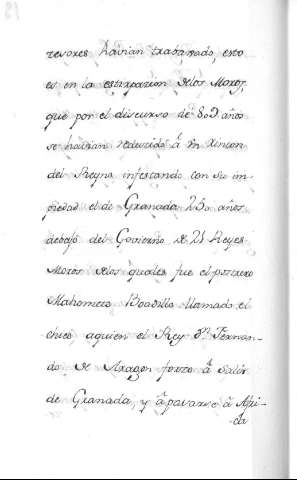 cesores havian trabajado, esto
es en la estirpacion de los Moros,
que por el discurso de 800 años
se havian reducido â un rincon
del Reyno infestando con su im-
piedad el de Granada 250 años
debajo del Govierno de 21 Reyes
Moros de los quales fue el postrero
Mahometo Boadillo llamado el
chico, aquien el Rey Dn. Fernan-
do de Aragon forzo â salir
de Granada, y â pasarse â Afri-
ca